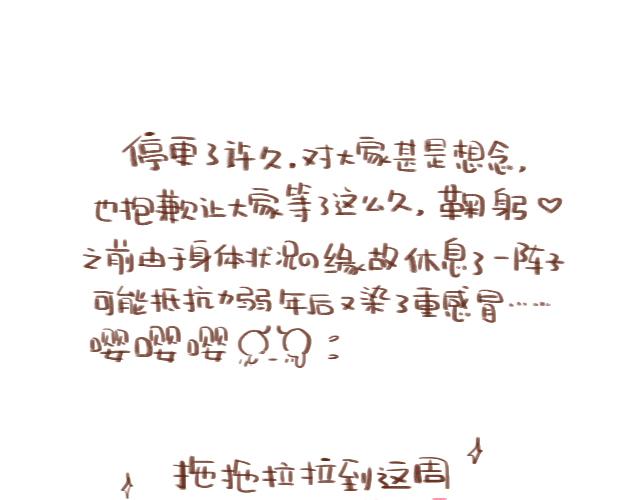 停更了许久.对大家甚是想念,
也抱歉让大家等了这么久,鞠躬♡
之前由于身体状况の缘故休息了一阵子
可能抵抗力弱 年后又染了重感冒……
嘤嘤嘤
拖拖拉拉到这周